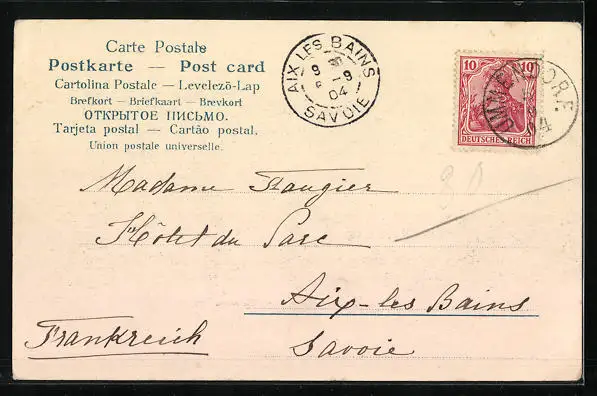 Carte Postale
Postkarte — Post card
Cartolina Postale — Levelező-Lap
Brefkort — Briefkaart — Brevkort
ОТКРЫТОЕ ПИСЬМО.
Tarjeta postal — Cartão postal.
Union postale universelle.
AIX LES BAINS
9 9
04
SAVOIE
10 10
DEUTSCHES REICH
Madame Faugier
Hôtel du Parc
Aix-les Bains
Savoie
Frankreich